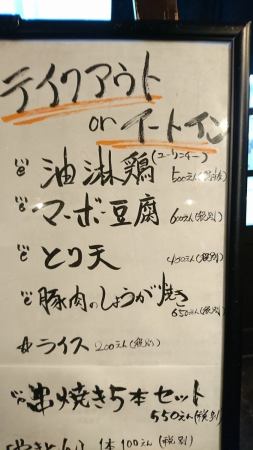 テイクアウト
or イートイン
油淋鶏(ユーリンチー) 500えん(税別)
マーボー豆腐 600えん(税別)
とり天 400えん(税別)
豚肉のしょうが焼き
650えん(税別)
☆ライス 200えん(税別)
串焼き5本セット
550えん(税別)
1本100えん(税別)